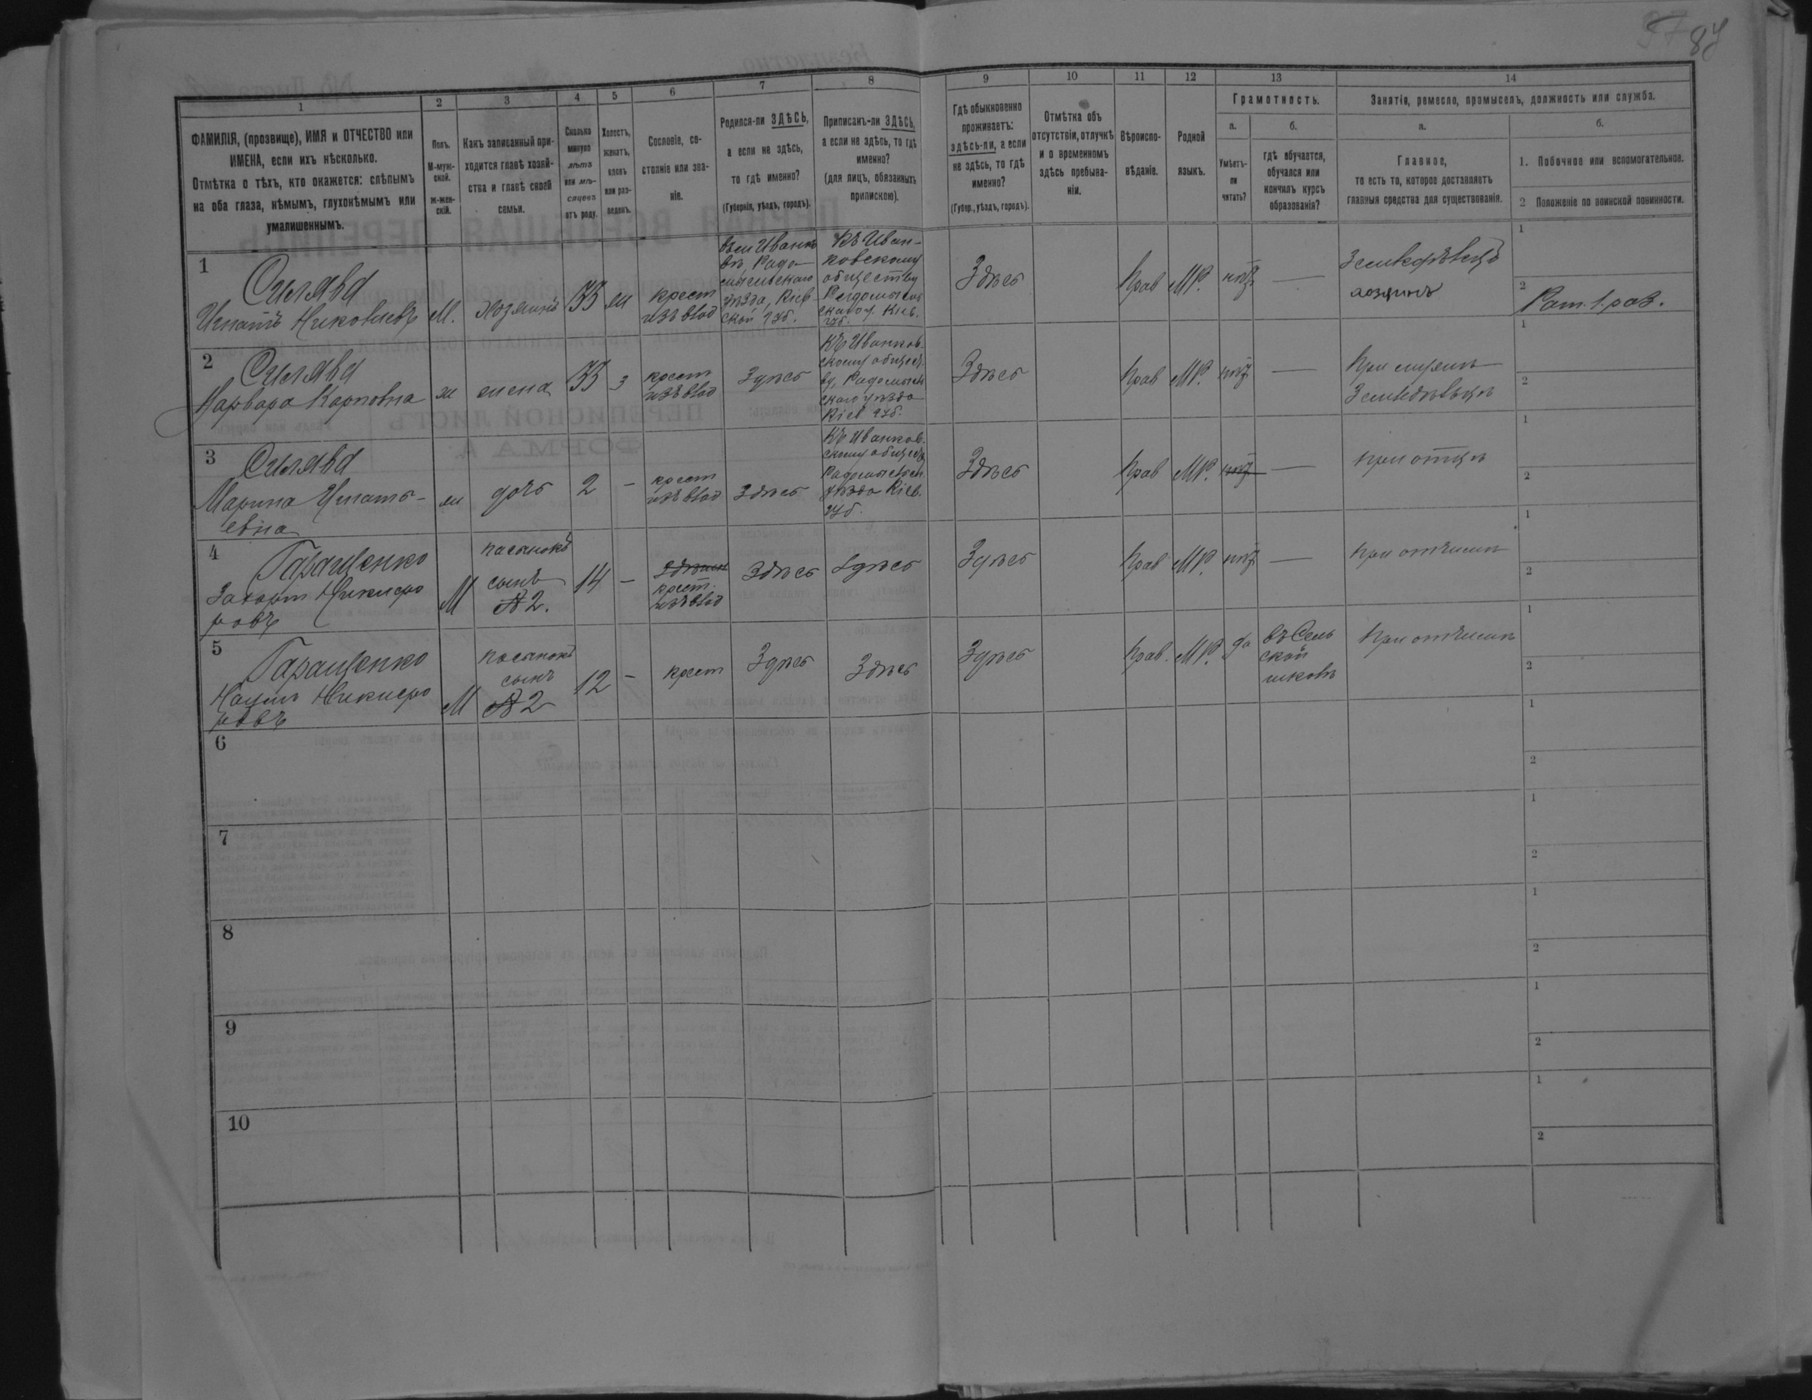 87
1
2
3
4
5
6
7
8
9
10
11
12
13
14
ФАМИЛІЯ, (прозвище), ИМЯ и ОТЧЕСТВО или
ИМЕНА, если ихъ нѣсколько.
Отмѣтка о тѣхъ, кто окажется: слѣпымъ
на оба глаза, нѣмымъ, глухонѣмымъ или
умалишеннымъ.
Полъ.
М-муж-
ской.
Ж-жен-
скій.
Какъ записанный при-
ходится главѣ хозяй-
ства и главѣ своей
семьи.
Сколько
минуло
лѣтъ
или мѣ-
сяцевъ
отъ роду.
Холостъ,
женатъ,
вдовъ
или раз-
веденъ.
Сословіе, со-
стояніе или зва-
ніе.
Родился-ли ЗДѢСЬ,
а если не здѣсь,
то гдѣ именно?
(Губернія, уѣздъ, городъ).
Приписанъ-ли ЗДѢСЬ,
а если не здѣсь, то гдѣ
именно?
(для лицъ, обязанныхъ
припискою).
Гдѣ обыкновенно
проживаетъ:
здѣсь-ли, а если
не здѣсь, то гдѣ
именно?
(Губер., уѣздъ, городъ).
Отмѣтка объ
отсутствіи, отлучкѣ
и о временномъ
здѣсь пребыва-
ніи.
Вѣроиспо-
вѣданіе.
Родной
языкъ.
Грамотность.
а.
б.
Умѣетъ-
ли
читать?
гдѣ обучается,
обучался или
кончилъ курсъ
образованія?
Занятія, ремесло, промыселъ, должность или служба.
а.
б.
Главное,
то есть то, которое доставляетъ
главныя средства для существованія.
1. Побочное или вспомогательное.
2 Положеніе по воинской повинности.
1
Силява
Игнатъ
М.
Хозяинъ
33
ж
крест
изъ влад
въ Радо-
уѣзда, Кіев
ской губ.
Къ Иван-
ковскому
обществу
Радомысль
скаго у. Кіев.
губ.
Здѣсь
Прав
МР.
нѣт
—
Земледѣлецъ
хозяинъ
1
2
Рат. 1 раз.
2
Силява
Варвара Карповна
ж
жена
33
з
крест
изъ влад
Здѣсь
Къ Иванков-
скому общест
ву, Радомысл
скаго уѣзда
Кіев губ.
Здѣсь
Прав
МР.
нѣт
—
При мужѣ
Земледѣлецъ
1
2
3
Силява
Марина Игнать-
евна
ж
дочь
2
—
крест
изъ влад
Здѣсь
Къ Иванков.
скому общест
Радомыслск
уѣзда Кіев.
губ.
Здѣсь
Прав
МР.
нѣт
—
при отцѣ
1
2
4
Геращенко
Захарій Никифо
ровъ
М
пасынокъ
сынъ
№ 2.
14
—
крест.
изъ влад
Здѣсь
Здѣсь
Здѣсь
Прав
МР.
нѣт
—
при отчимѣ
1
2
5
Геращенко
Наумъ Никифо
ровъ
М
пасынокъ
сынъ
№ 2
12
—
крест
Здѣсь
Здѣсь
Здѣсь
Прав.
МР.
да
въ Сель
ской
школѣ
при отчимѣ
1
2
6
1
2
7
1
2
8
1
2
9
1
2
10
1
2